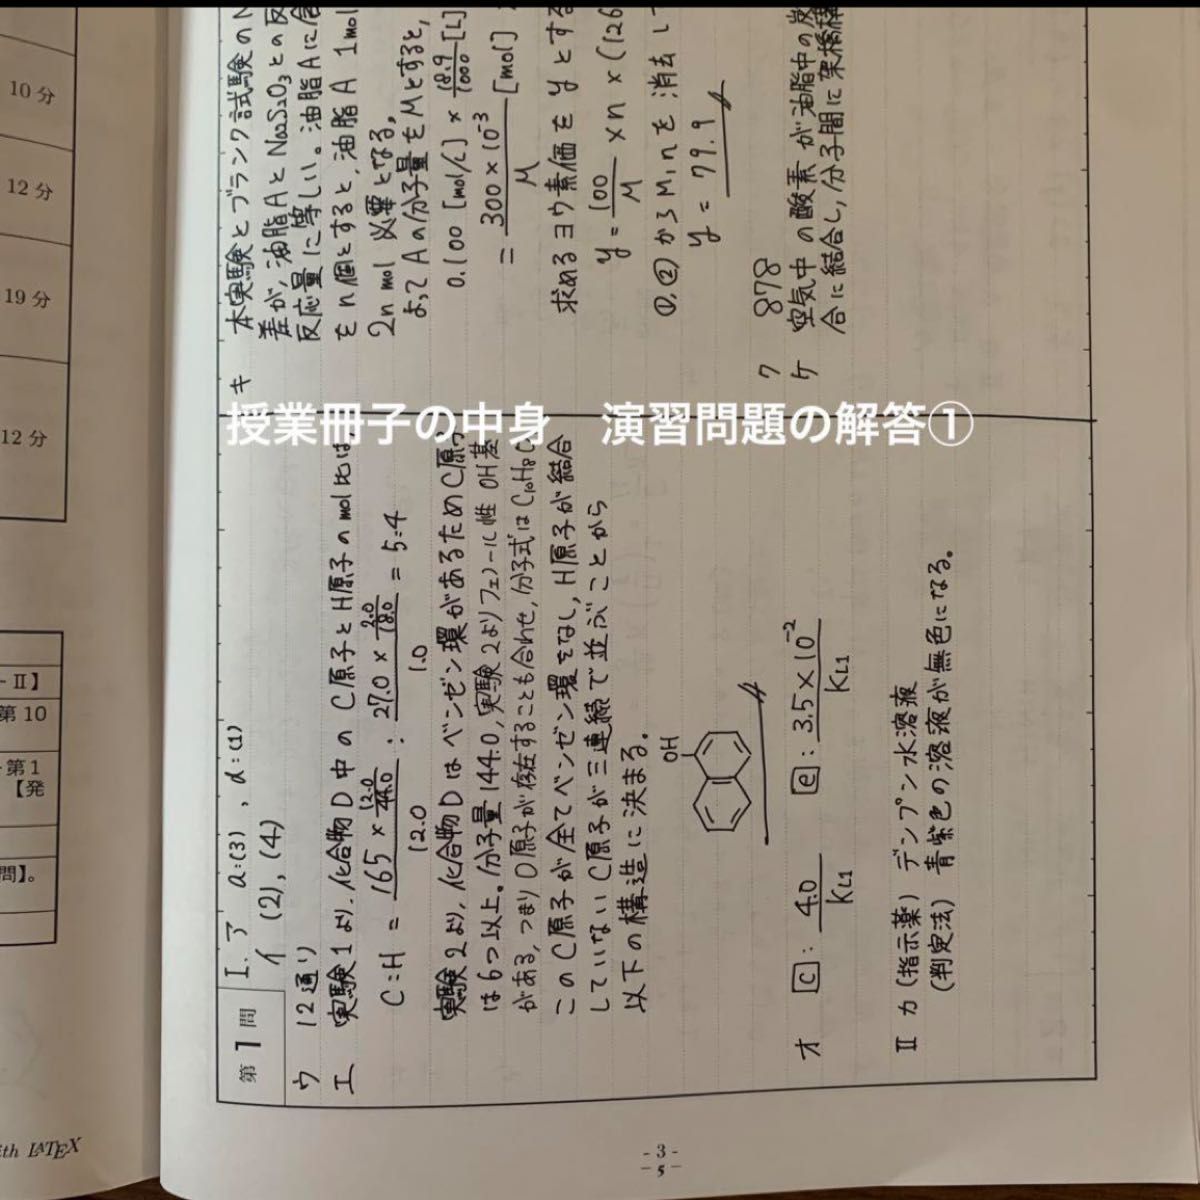 授業冊子の中身 演習問題の解答①
10分
12分
19分
12分
- II】
第10
第1
【発
問】。
ith LATEX
第1問
I. ア a:(3), d:(1)
イ (2), (4)
ウ 12通り
エ 実験1より、化合物D中のC原子とH原子のmol比は、
C:H = 165 × 12.0/44.0 / 12.0 : 27.0 × 2.0/18.0 / 1.0 = 5:4
実験2より、化合物Dはベンゼン環があるためC原
は6つ以上。分子量144.0, 実験2よりフェノール性OH基
がある, つまりO原子が存在することも合わせ, 分子式はC10H8O
このC原子が全てベンゼン環をなし, H原子が結合
していないC原子が三連続で並ぶことから
以下の構造に決まる。
OH
オ c: 4.0/KL1 e: 3.5×10⁻²/KL1
II カ (指示薬) デンプン水溶液
(判定法) 青紫色の溶液が無色になる。
キ 本実験とブランク試験のN
差が, 油脂AとNa2S2O3との反
反応量に等しい。油脂Aに含
をn個とすると, 油脂A 1mol
2n mol 必要となる。
よってAの分子量をMとすると,
0.100 [mol/L] × 18.9/1000 [L]
= 300×10⁻³/M [mol]
求めるヨウ素価をyとする
y = 100/M × n × (126
①, ②からM, nを消去して
y = 79.9
ク 878
ケ 空気中の酸素が油脂中の炭
合に結合し, 分子間に架橋構
- 3 -
5